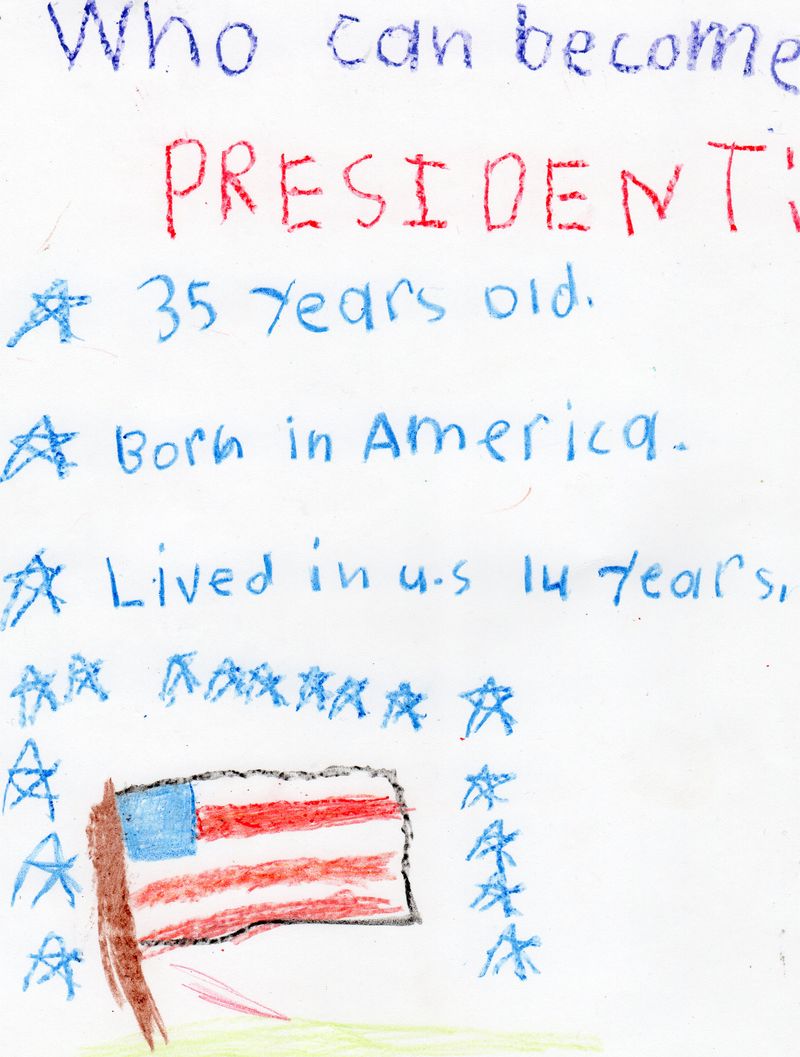 Who can become
PRESIDENT
35 years old.
Born in America.
Lived in u.s 14 years.